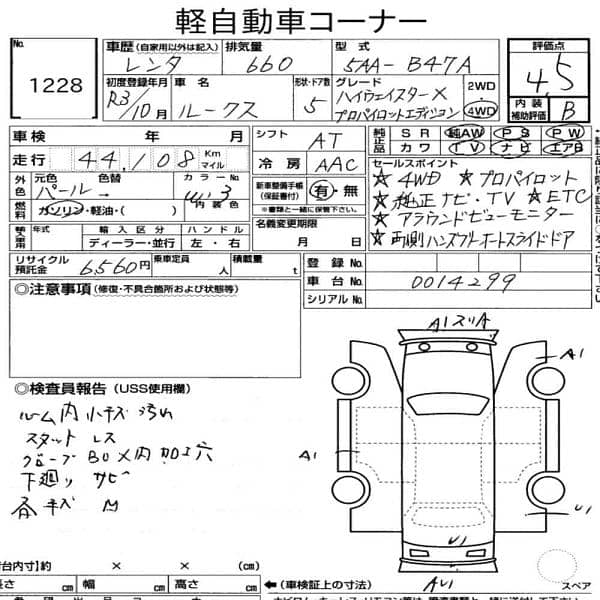 軽自動車コーナー
No. 1228
車歴 (自家用以外は記入) レンタ
排気量 660
型式 5AA- B47A
評価点 4.5
初度登録年月 R3/10月
車名 ルークス
形状・ドア数 5
グレード ハイウェイスターX プロパイロットエディション
2WD 4WD
内装補助評価 B
車検 年 月
シフト AT
純正品 SR 純AW PS PW
カワ TV ナビ エアB
走行 44,108 Km マイル
冷房 AAC
セールスポイント
★4WD ★プロパイロット
★純正ナビ・TV ★ETC
★アラウンドビューモニター
★両側ハンズフリーオートスライドドア
外色 元色 パール 色替 →
カラーNo.
内装色
燃料 ガソリン・軽油・( )
新車整備手帳 (保証書付) 有・無
※書類と一緒に保管下さい。
輸入車用 年式 輸入区分 ハンドル
ディーラー・並行 左・右
名義変更期限 月 日
リサイクル預託金 6,560円
乗車定員 人
積載量 t
登録No.
車台No. 0014299
シリアルNo.
◎注意事項 (修復・不具合箇所および状態等)
◎検査員報告 (USS使用欄)
ルーム内 小キズ 汚れ
スタット レス
グローブBOX内 加工穴
下廻り サビ
各キズ M
A1スリA
A1
A1
U1
U1
AU1
スペア
荷台内寸)約 × × (cm)
長さ cm 幅 cm 高さ cm
← (車検証上の寸法)